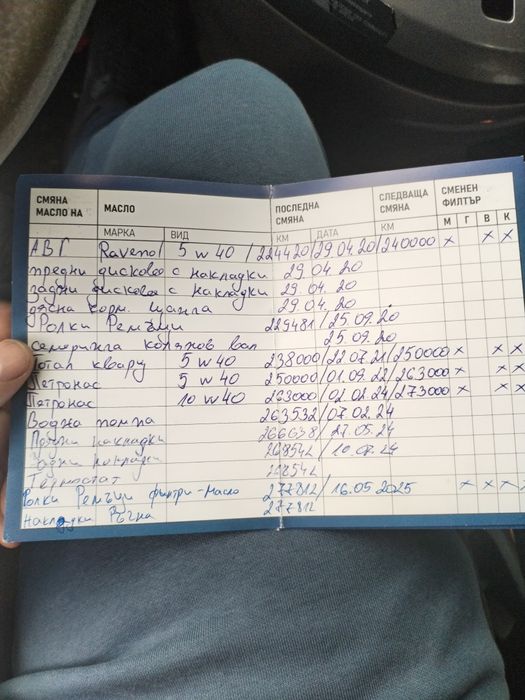 СМЯНА МАСЛО НА МАСЛО ПОСЛЕДНА СМЯНА СЛЕДВАЩА СМЯНА СМЕНЕН ФИЛТЪР
МАРКА ВИД КМ ДАТА КМ М Г В К
АВГ Ravenol 5w40 / 224420/29.04.20/240000 x x x
предни дискове с накладки 29.04.20
задни дискове с накладки 29.04.20
дясна корм. щанга 29.04.20
Ролки Ремъци 229481/25.09.20
Семеринга колянов вал 25.09.20
Тотал кварц 5w40 238000/22.07.21/250000 x x x
Петронас 5w40 250000/01.09.22/263000 x x x
Петронас 10w40 263000/02.02.24/273000 x x x
Водна помпа 263532/07.02.24
накладки 266638/27.05.24
268542/
Термостат 268542
Ролки Ремъци филтри-масло 277812/16.05.2025 x x x
Накладки Ръчна 277812